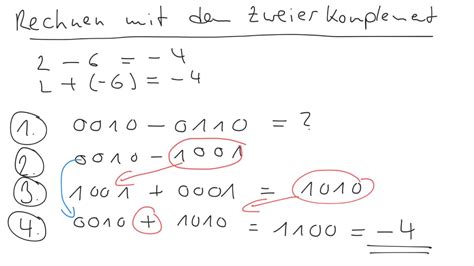 Rechnen mit dem Zweierkomplement
2 - 6 = -4
2 + (-6) = -4
1. 0010 - 0110 = ?
2. 0010 - 1001
3. 1001 + 0001 = 1010
4. 0010 + 1010 = 1100 = -4